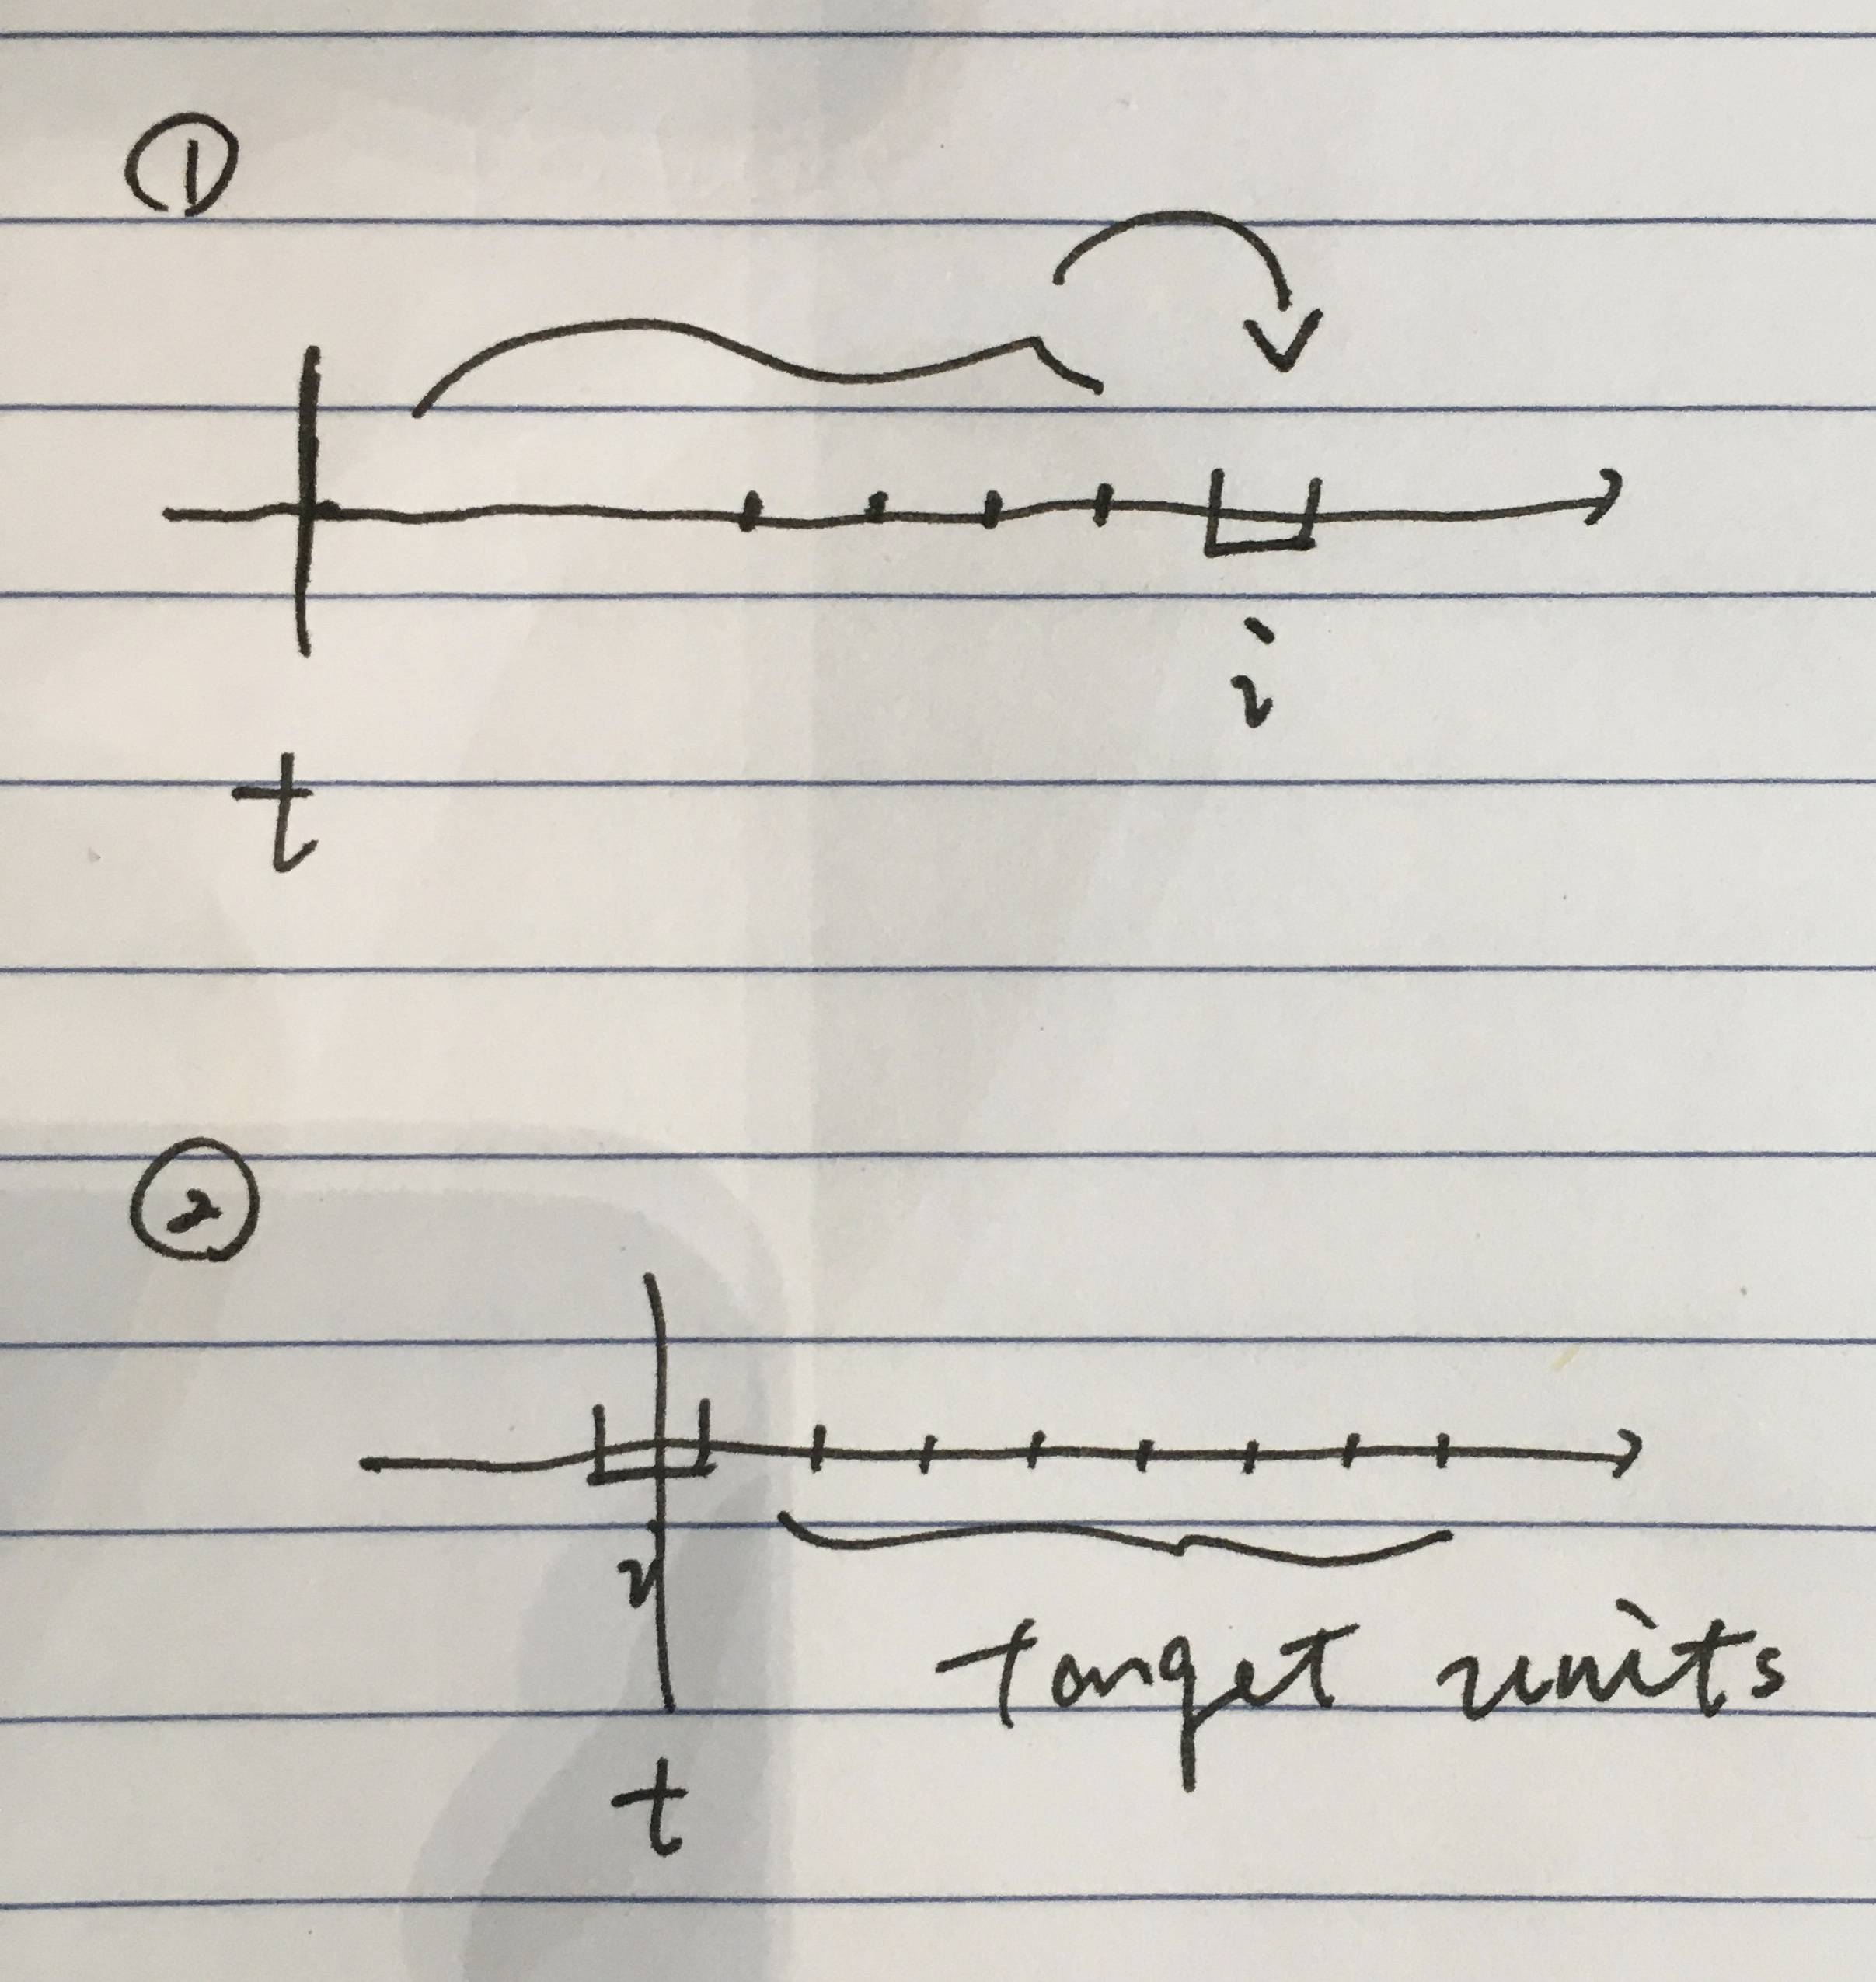 ①
i
t
②
i
target units
t